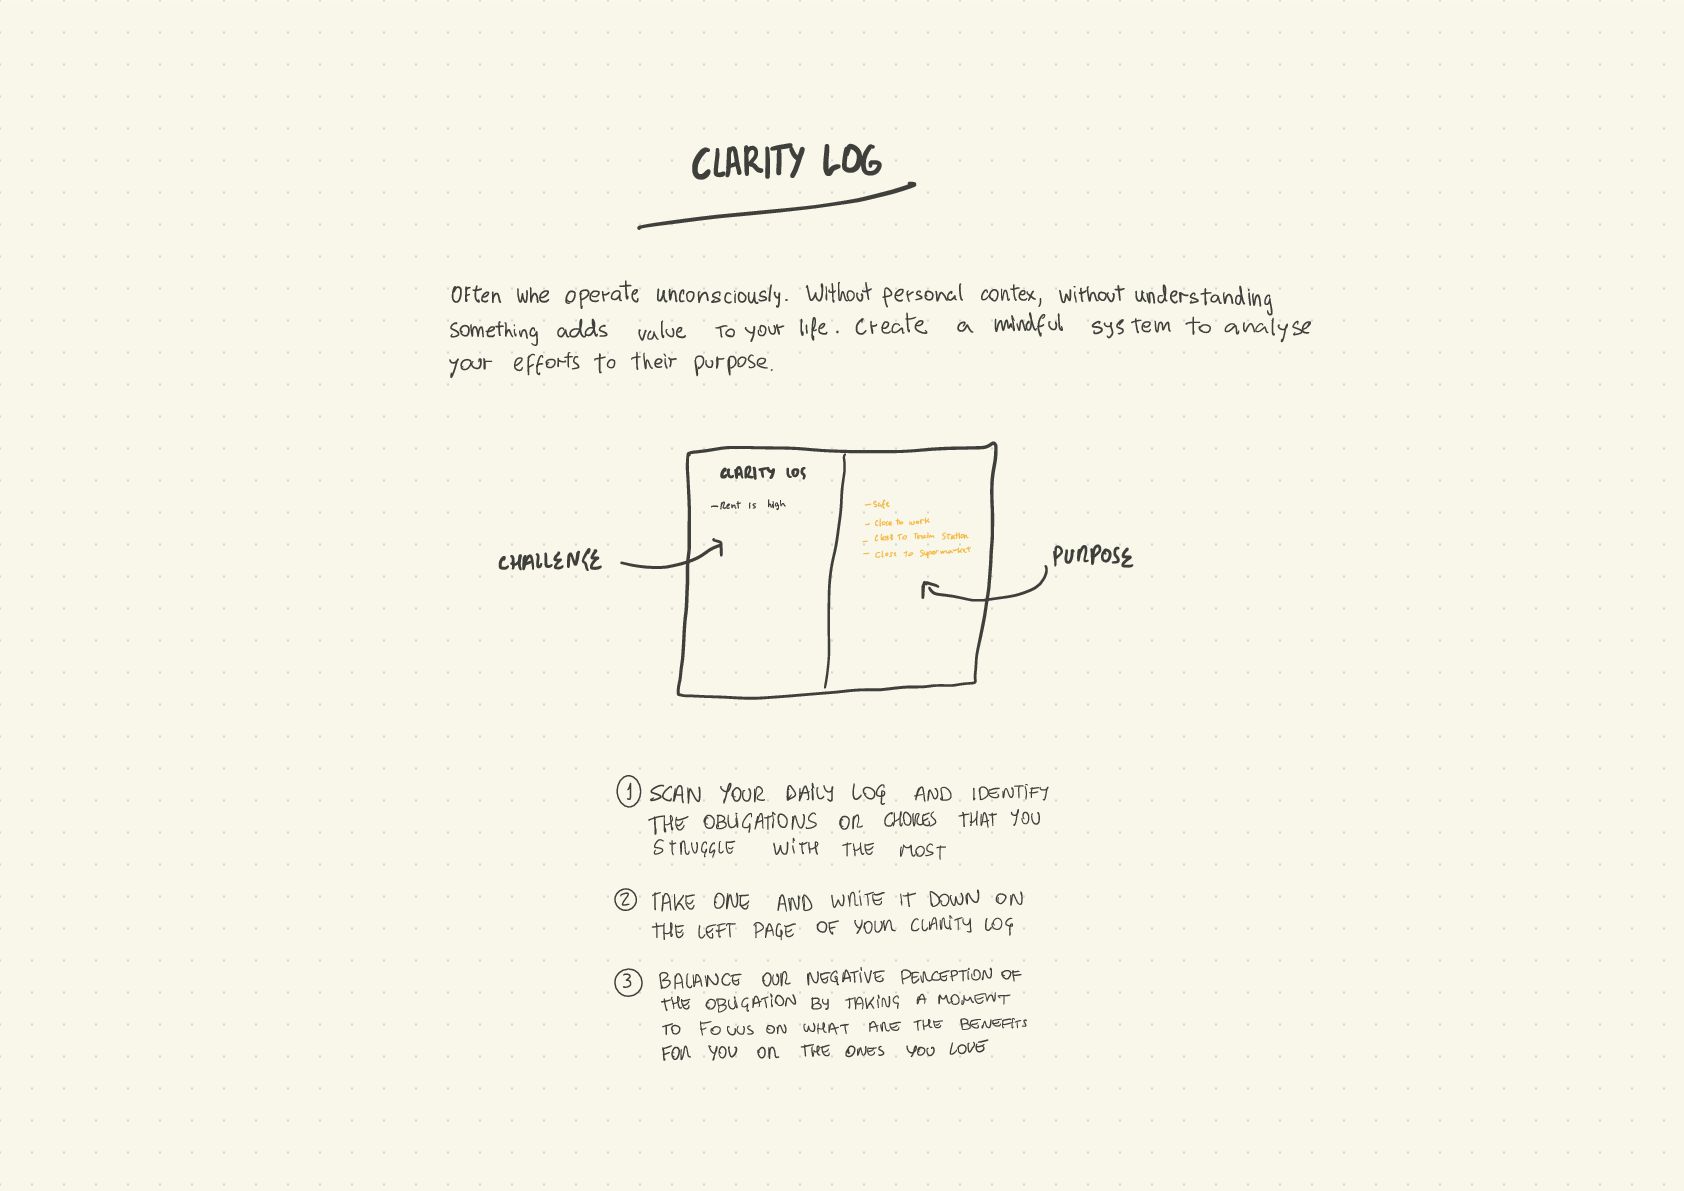 CLARITY LOG
Often whe operate unconsciously. Without personal contex, without understanding
something adds value to your life. Create a mindful system to analyse
your efforts to their purpose.
CLARITY LOG
- Rent is high
- Safe
- Close to work
- Close to Train Station
- Close to Supermarket
CHALLENGE
PURPOSE
1 SCAN YOUR DAILY LOG AND IDENTIFY
THE OBLIGATIONS OR CHORES THAT YOU
STRUGGLE WITH THE MOST
2 TAKE ONE AND WRITE IT DOWN ON
THE LEFT PAGE OF YOUR CLARITY LOG
3 BALANCE OUR NEGATIVE PERCEPTION OF
THE OBLIGATION BY TAKING A MOMENT
TO FOCUS ON WHAT ARE THE BENEFITS
FOR YOU OR THE ONES YOU LOVE